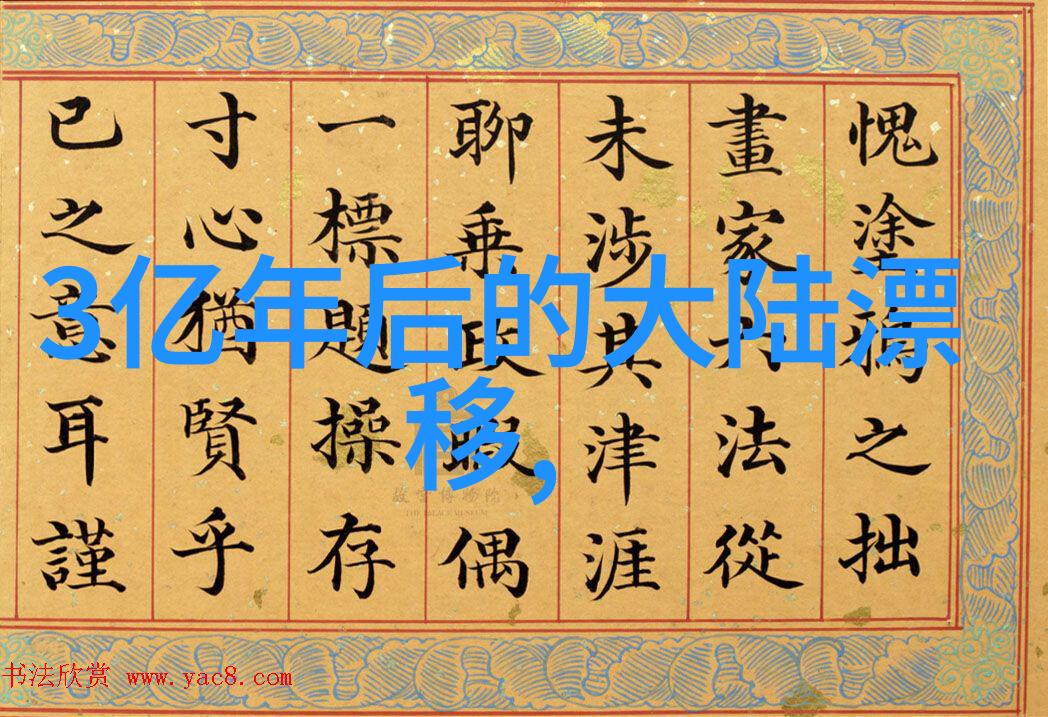 愧塗鴉之拙
畫家六法從
未涉其津涯
聊乗政暇偶
一標題操存
寸心猶賢乎
已之意耳謹
3亿年后的大陆漂
移,
故宫博物院
THE PALACE MUSEUM
书法欣赏 www.yac8.com